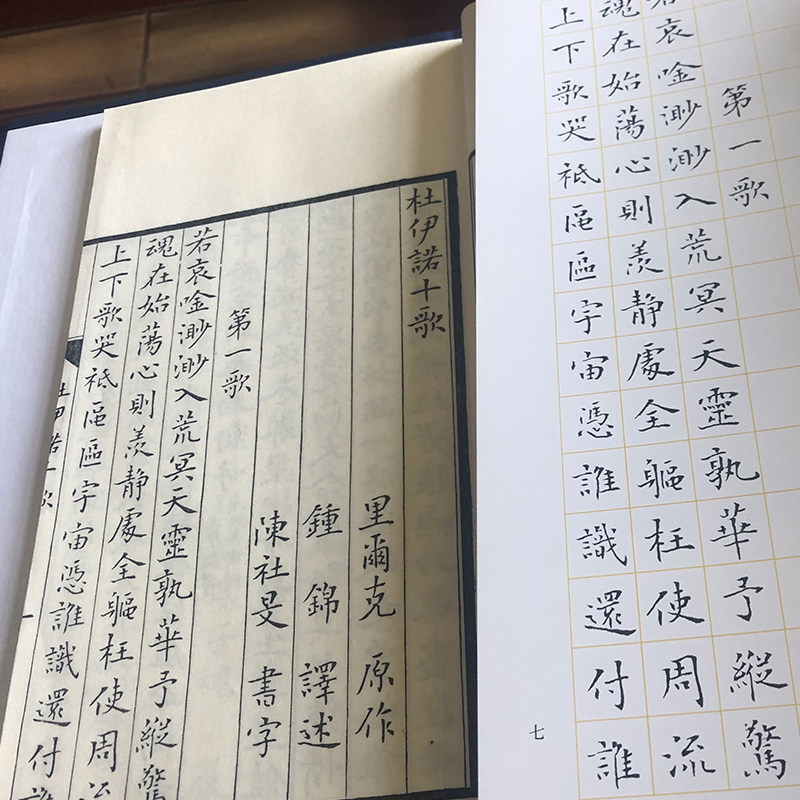 杜伊諾十歌
里爾克 原作
鍾錦 譯述
陳社旻 書字
第一歌
若哀唫渺渺入荒冥天靈孰華予縱驚
魂在始蕩心則羨靜處全軀枉使周流
上下歌哭祗區區宇宙憑誰識還付誰
杜伊諾
第一歌
若哀唫渺渺入荒冥天靈孰華予縱驚
魂在始蕩心則羨靜處全軀枉使周流
上下歌哭祗區區宇宙憑誰識還付誰
七